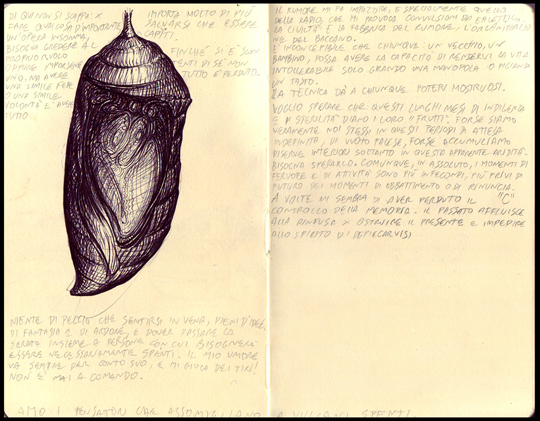 DI QUANTO SI SAPPIA: X
FARE QUALCOSA D'IMPORTANTE
UN'OPERA INSOMMA
BISOGNA CREDERE AL
PROPRIO RUOLO
E DIFFICILE IMPORSENE
UNO, MA AVERE
UNA SIMILE FEDE
O UNA SIMILE
VOLONTÀ È AVERE
TUTTO
IMPORTA MOLTO DI PIÙ
SALVARSI CHE ESSERE
CAPITI.
FINCHE' SI E' SCON
TENTI DI SE' NON
TUTTO È PERDUTO.
NIENTE DI PEGGIO CHE SENTIRSI IN VENA, PIENI D'IDEE,
DI FANTASIA E DI ARDORE, E DOVER PASSARE LA
SERATA INSIEME A PERSONE CON CUI BISOGNERÀ
ESSERE NECESSARIAMENTE SPENTI. IL MIO UMORE
VA SEMPRE PER CONTO SUO, E MI GIOCA DEI TIRI!
NON È MAI A COMANDO.
IL RUMORE MI FA IMPAZZIRE, E SPECIALMENTE QUELLO
DELLA RADIO, CHE MI PROVOCA CONVULSIONI DA EPILETTICO.
LA CIVILTÀ È LA FABBRICA DEL RUMORE, L'ORGANIZZAZIO
NE DEL BACCANO.
È INCONCEPIBILE CHE CHIUNQUE: UN VECCHIO, UN
BAMBINO, POSSA AVERE LA CAPACITÀ DI RENDERVI LA VITA
INTOLLERABILE SOLO GIRANDO UNA MANOPOLA O PIGIANDO
UN TASTO.
LA TECNICA DÀ A CHIUNQUE POTERI MOSTRUOSI.
VOGLIO SPERARE CHE QUESTI LUNGHI MESI DI INDIGENZA
E DI STERILITÀ DIANO I LORO "FRUTTI". FORSE SIAMO
VERAMENTE NOI STESSI IN QUESTI PERIODI DI ATTESA
INDEFINITA, DI VUOTO PALESE, FORSE ACCUMULIAMO
RISERVE INTERIORI SOLTANTO IN QUESTA APPARENTE ARIDITÀ.
BISOGNA SPERARLO. COMUNQUE, IN ASSOLUTO, I MOMENTI DI
FERVORE E DI ATTIVITÀ SONO PIÙ INFECONDI, PIÙ PRIVI DI
FUTURO DEI MOMENTI DI ABBATTIMENTO O DI RINUNCIA.
A VOLTE MI SEMBRA DI AVER PERDUTO IL "C"
CONTROLLO DELLA MEMORIA. IL PASSATO AFFLUISCE
ALLA RINFUSA X OSTRUIRE IL PRESENTE E IMPEDIRE
ALLO SPIRITO DI
AMO I PENSATORI CHE ASSOMIGLIANO A VULCANI SPENTI